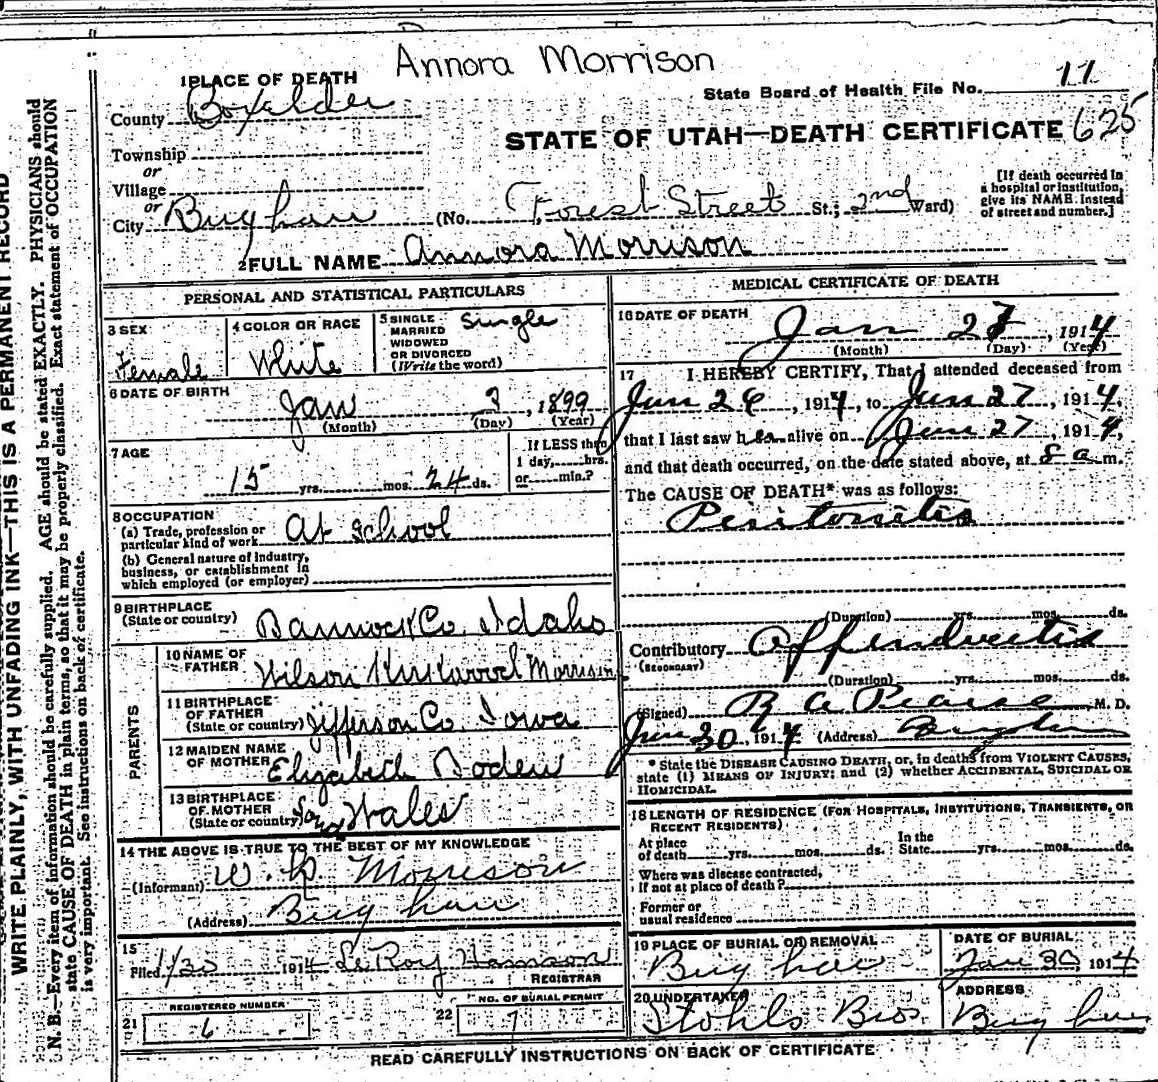 Annora Morrison
1 PLACE OF DEATH
State Board of Health File No. 11
County Boxelder
STATE OF UTAH—DEATH CERTIFICATE 625
Township
or
Village
or
City Brigham (No. Forest Street St.; 2nd Ward)
[If death occurred in a hospital or institution, give its NAME instead of street and number.]
2 FULL NAME Annora Morrison
PERSONAL AND STATISTICAL PARTICULARS
3 SEX Female
4 COLOR OR RACE White
5 SINGLE MARRIED WIDOWED OR DIVORCED (Write the word) Single
6 DATE OF BIRTH Jan 3, 1899
(Month) (Day) (Year)
7 AGE 15 yrs. mos. 24 ds.
If LESS than 1 day, hrs. or min.?
8 OCCUPATION
(a) Trade, profession or particular kind of work At School
(b) General nature of industry, business, or establishment in which employed (or employer)
9 BIRTHPLACE (State or country) Bannock Co. Idaho
PARENTS
10 NAME OF FATHER Wilson Kirkwood Morrison
11 BIRTHPLACE OF FATHER (State or country) Jefferson Co. Iowa
12 MAIDEN NAME OF MOTHER Elizabeth Boden
13 BIRTHPLACE OF MOTHER (State or country) Wales
14 THE ABOVE IS TRUE TO THE BEST OF MY KNOWLEDGE
(Informant) W. K. Morrison
(Address) Brigham
15
Filed 1/30 1914 LeRoy Hanson
REGISTRAR
REGISTERED NUMBER
21 6
NO. OF BURIAL PERMIT
22 7
MEDICAL CERTIFICATE OF DEATH
16 DATE OF DEATH
Jan 27, 1914
(Month) (Day) (Year)
17 I HEREBY CERTIFY, That I attended deceased from
Jan 26, 1914, to Jan 27, 1914,
that I last saw her alive on Jan 27, 1914,
and that death occurred, on the date stated above, at 8 a m.
The CAUSE OF DEATH* was as follows:
Peritonitis
(Duration) yrs. mos. ds.
Contributory Appendicitis
(SECONDARY)
(Duration) yrs. mos. ds.
(Signed) R A Pearse, M. D.
Jan 30, 1914 (Address) Brigham
* State the DISEASE CAUSING DEATH, or, in deaths from VIOLENT CAUSES, state (1) MEANS OF INJURY; and (2) whether ACCIDENTAL, SUICIDAL OR HOMICIDAL.
18 LENGTH OF RESIDENCE (FOR HOSPITALS, INSTITUTIONS, TRANSIENTS, OR RECENT RESIDENTS)
At place of death yrs. mos. ds. In the State yrs. mos. ds.
Where was disease contracted, if not at place of death?
Former or usual residence
19 PLACE OF BURIAL OR REMOVAL
Brigham
DATE OF BURIAL
Jan 30, 1914
20 UNDERTAKER
Stohls Bros
ADDRESS
Brigham
READ CAREFULLY INSTRUCTIONS ON BACK OF CERTIFICATE
WRITE PLAINLY, WITH UNFADING INK—THIS IS A PERMANENT RECORD
N. B.—Every item of information should be carefully supplied. AGE should be stated EXACTLY. PHYSICIANS should
state CAUSE OF DEATH in plain terms, so that it may be properly classified. Exact statement of OCCUPATION
is very important. See instructions on back of certificate.